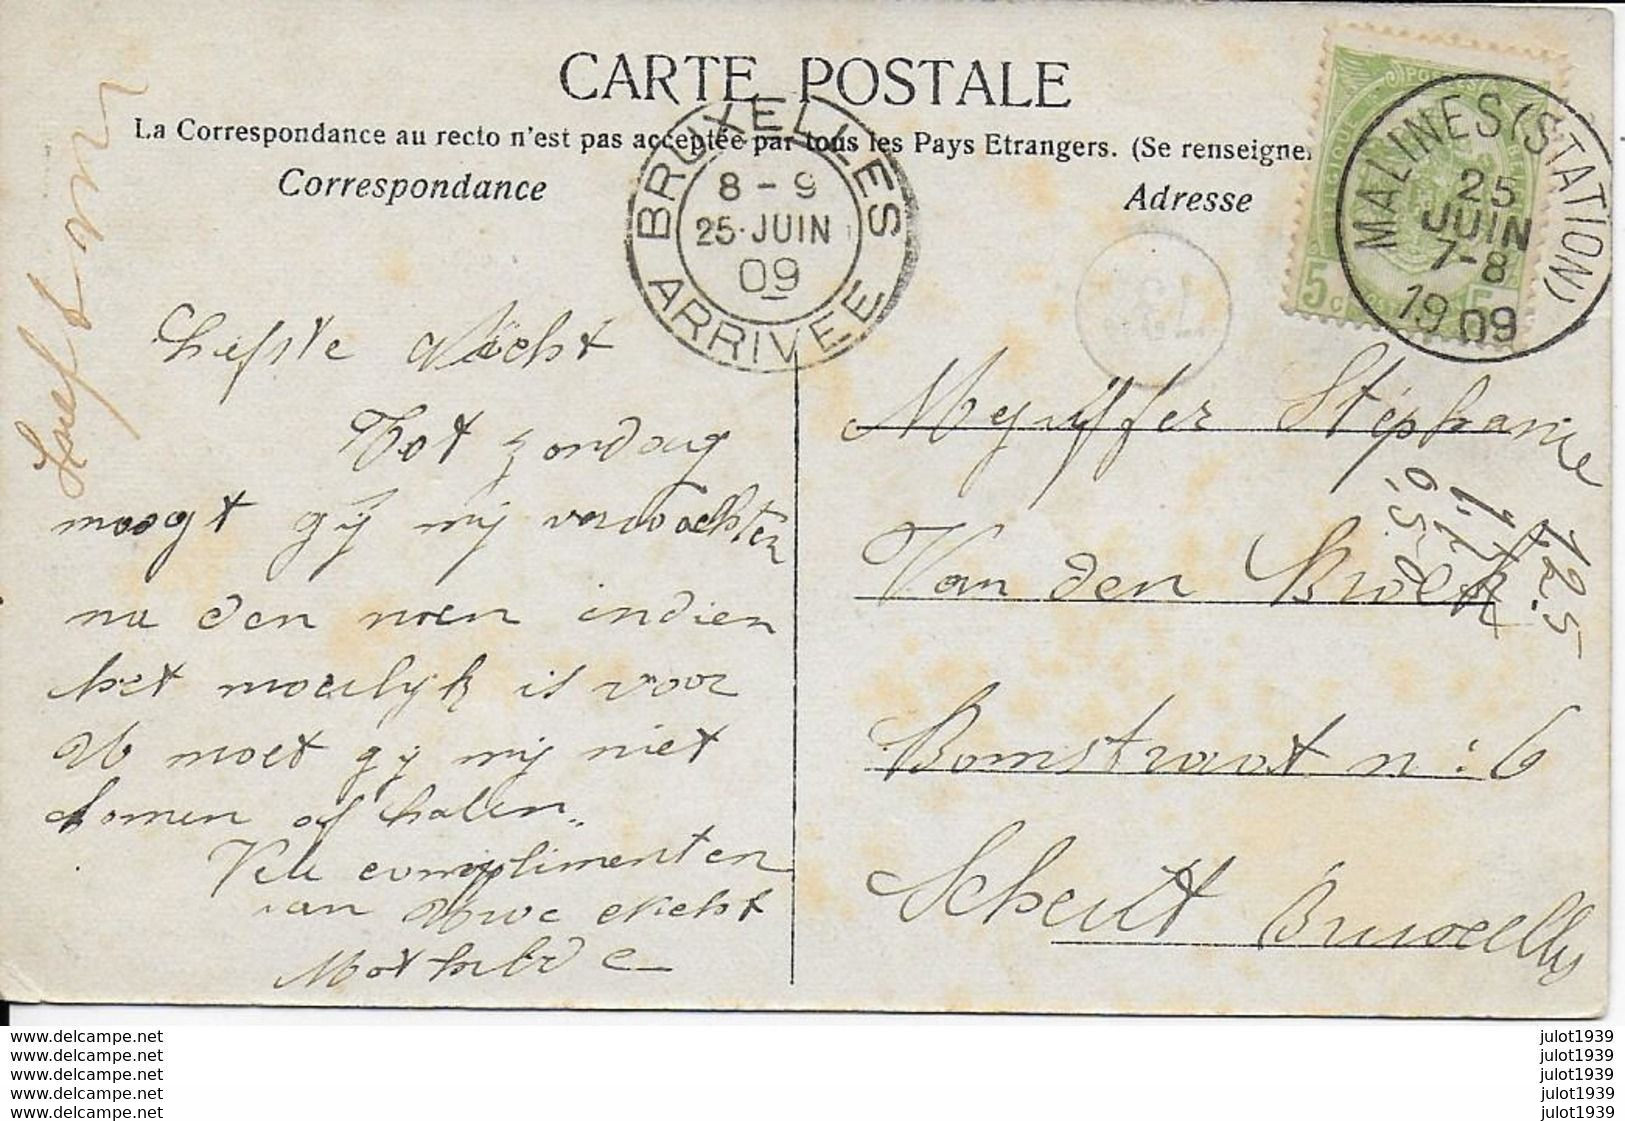 CARTE POSTALE
La Correspondance au recto n'est pas acceptée par tous les Pays Etrangers. (Se renseigner
Correspondance
Adresse
BRUXELLES
8 - 9
25 · JUIN
09
ARRIVEE
MALINES (STATION)
25
JUIN
7-8
19 09
5
Liefste Nicht
Tot zondag
moogt gij mij verwachten
na den noen indien
het moeilijk is voor
U moet gij mij niet
komen af halen..
Vele complimenten
van Uwe Nicht
Mathilde
Mejuffer Stéphanie
Van den Broeck
Bomstraat n: 6
Scheut Bruxelles
125
delcampe.net
delcampe.net
delcampe.net
delcampe.net
delcampe.net
julot1939
julot1939
julot1939
julot1939
julot1939